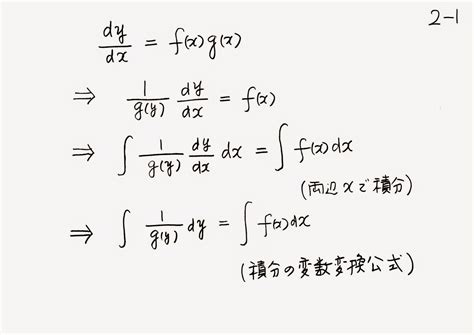 2-1
dy/dx = f(x)g(x)
⇒ 1/g(y) dy/dx = f(x)
⇒ ∫ 1/g(y) dy/dx dx = ∫ f(x)dx
(両辺xで積分)
⇒ ∫ 1/g(y) dy = ∫ f(x)dx
(積分の変数変換公式)